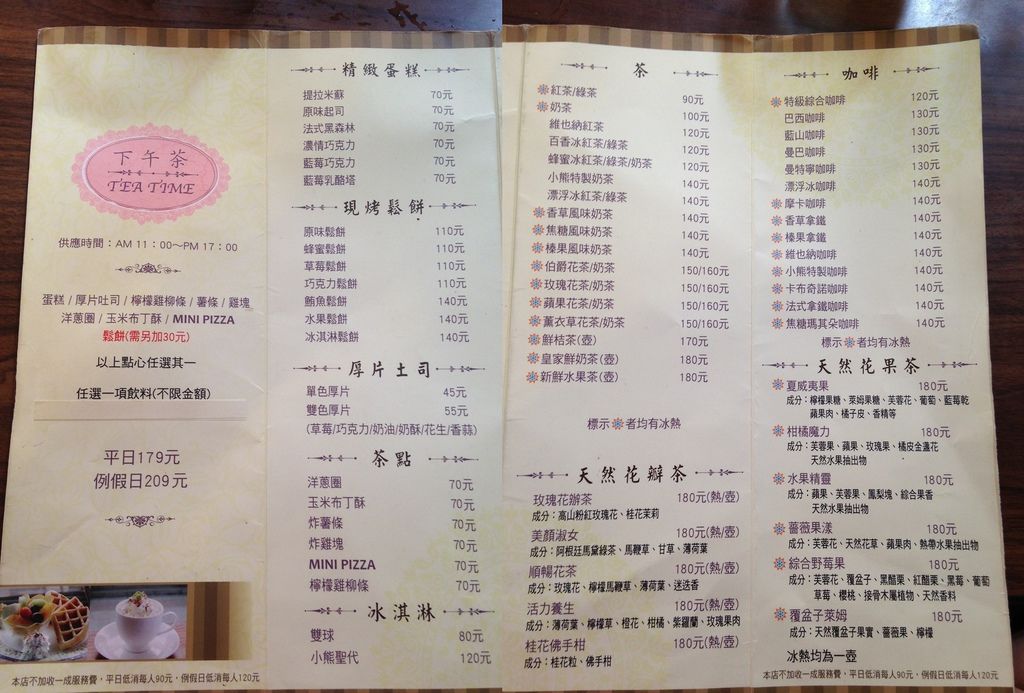 下午茶
TEA TIME
供應時間：AM 11：00～PM 17：00
蛋糕 / 厚片吐司 / 檸檬雞柳條 / 薯條 / 雞塊
洋蔥圈 / 玉米布丁酥 / MINI PIZZA
鬆餅(需另加30元)
以上點心任選其一
任選一項飲料(不限金額)
平日179元
例假日209元
本店不加收一成服務費，平日低消每人90元，例假日低消每人120元
精緻蛋糕
提拉米蘇 70元
原味起司 70元
法式黑森林 70元
濃情巧克力 70元
藍莓巧克力 70元
藍莓乳酪塔 70元
現烤鬆餅
原味鬆餅 110元
蜂蜜鬆餅 110元
草莓鬆餅 110元
巧克力鬆餅 110元
鮪魚鬆餅 140元
水果鬆餅 140元
冰淇淋鬆餅 140元
厚片土司
單色厚片 45元
雙色厚片 55元
(草莓/巧克力/奶油/奶酥/花生/香蒜)
茶點
洋蔥圈 70元
玉米布丁酥 70元
炸薯條 70元
炸雞塊 70元
MINI PIZZA 70元
檸檬雞柳條 70元
冰淇淋
雙球 80元
小熊聖代 120元
茶
紅茶/綠茶 90元
奶茶 100元
維也納紅茶 120元
百香冰紅茶/綠茶 120元
蜂蜜冰紅茶/綠茶/奶茶 120元
小熊特製奶茶 140元
漂浮冰紅茶/綠茶 140元
香草風味奶茶 140元
焦糖風味奶茶 140元
榛果風味奶茶 140元
伯爵花茶/奶茶 150/160元
玫瑰花茶/奶茶 150/160元
蘋果花茶/奶茶 150/160元
薰衣草花茶/奶茶 150/160元
鮮桔茶(壺) 170元
皇家鮮奶茶(壺) 180元
新鮮水果茶(壺) 180元
標示者均有冰熱
天然花瓣茶
玫瑰花辦茶 180元(熱/壺)
成分：高山粉紅玫瑰花、桂花茉莉
美顏淑女 180元(熱/壺)
成分：阿根廷馬黛綠茶、馬鞭草、甘草、薄荷葉
順暢花茶 180元(熱/壺)
成分：玫瑰花、檸檬馬鞭草、薄荷葉、迷迭香
活力養生 180元(熱/壺)
成分：薄荷葉、檸檬草、橙花、柑橘、紫羅蘭、玫瑰果肉
桂花佛手柑 180元(熱/壺)
成分：桂花粒、佛手柑
咖啡
特級綜合咖啡 120元
巴西咖啡 130元
藍山咖啡 130元
曼巴咖啡 130元
曼特寧咖啡 130元
漂浮冰咖啡 140元
摩卡咖啡 140元
香草拿鐵 140元
榛果拿鐵 140元
維也納咖啡 140元
小熊特製咖啡 140元
卡布奇諾咖啡 140元
法式拿鐵咖啡 140元
焦糖瑪其朵咖啡 140元
標示者均有冰熱
天然花果茶
夏威夷果 180元
成分：檸檬果糖、萊姆果糖、芙蓉花、葡萄、藍莓乾
蘋果肉、橘子皮、香精等
柑橘魔力 180元
成分：芙蓉果、蘋果、玫瑰果、橘皮金盞花
天然水果抽出物
水果精靈 180元
成分：蘋果、芙蓉果、鳳梨塊、綜合果香
天然水果抽出物
薔薇果漾 180元
成分：芙蓉花、天然花草、蘋果肉、熱帶水果抽出物
綜合野莓果 180元
成分：芙蓉花、覆盆子、黑醋栗、紅醋栗、黑莓、葡萄
草莓、櫻桃、接骨木屬植物、天然香料
覆盆子萊姆 180元
成分：天然覆盆子果實、薔薇果、檸檬
冰熱均為一壺
本店不加收一成服務費，平日低消每人90元，例假日低消每人120元